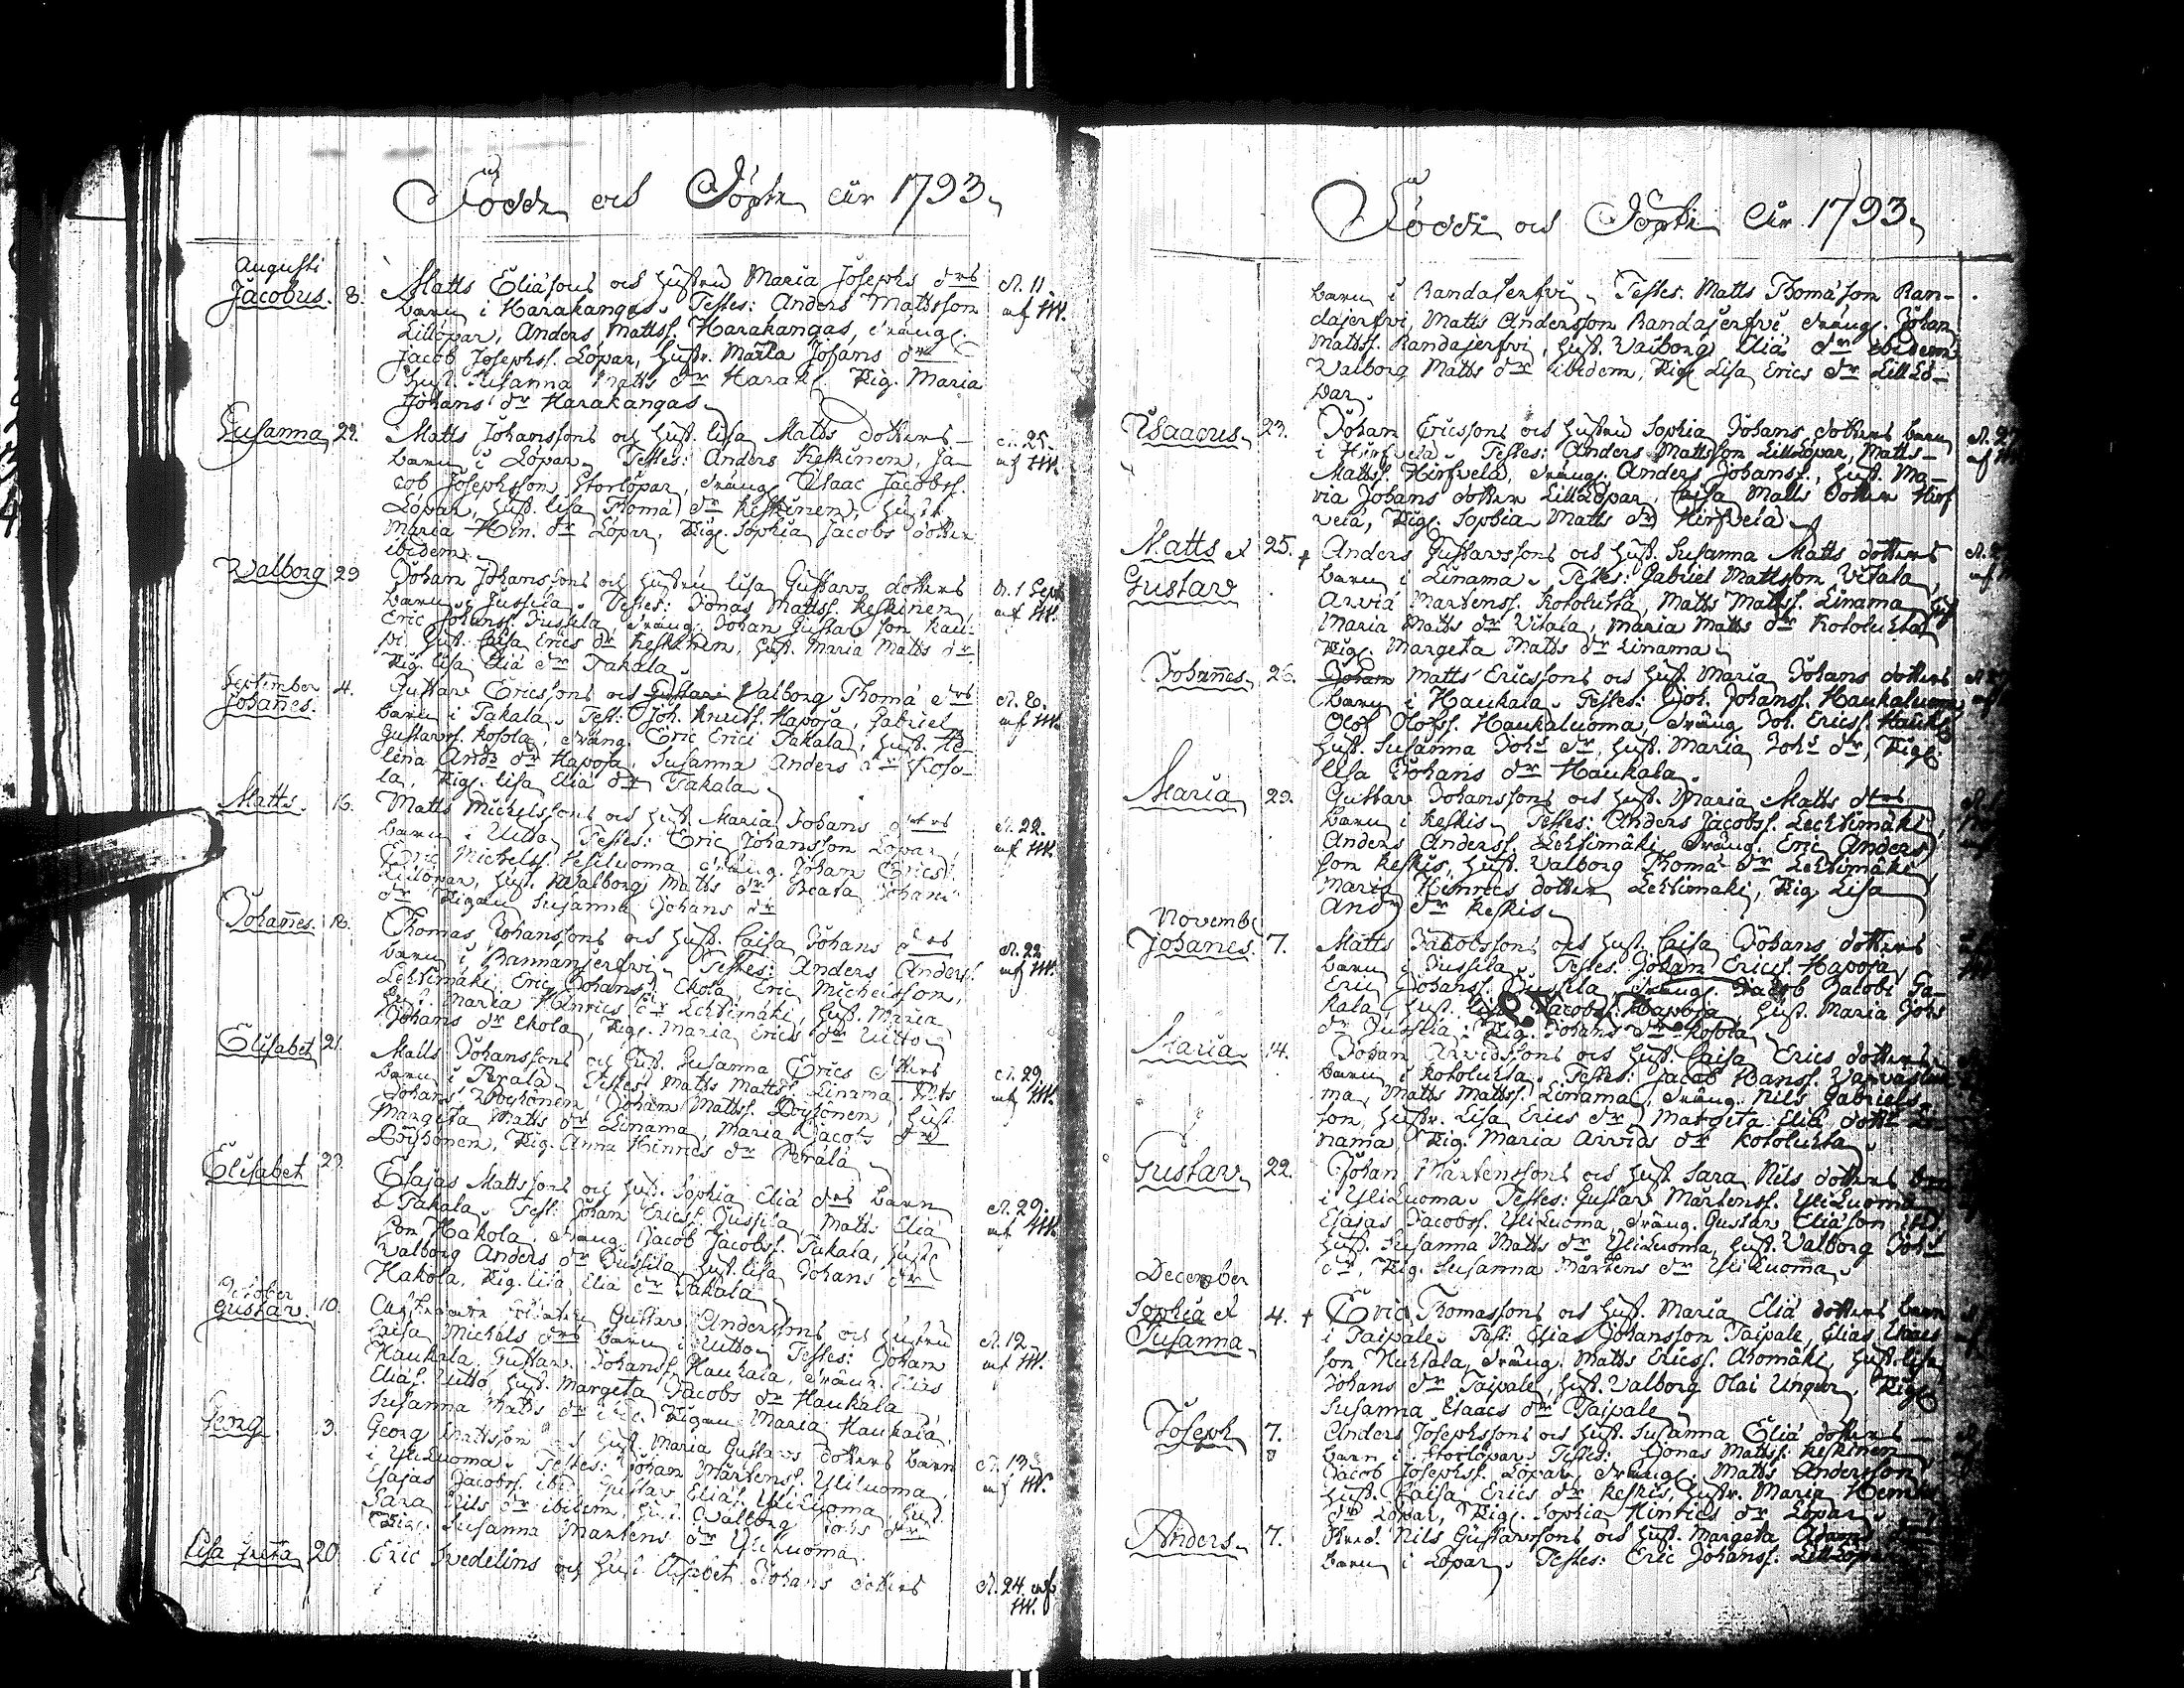 Födde och Döpte åhr 1793.
Augusti
Jacobus. 8. Matts Eliæsons och hustru Maria Josephs drs d. 11
barn i Harakangas. Testes: Anders Mattsson af HM.
Lillöpar, Anders Mattss. Harakangas, dräng.
Jacob Josephss. Löpar, Hustr. Maria Johans dr
Hust. Susanna Matts dr Harak. Pig. Maria
Johans dr Harakangas.
Susanna 22. Matts Johanssons och Hust. Lisa Matts dotters d. 25.
barn i Löpar. Testes: Anders Keskinen, Ja- af HM.
cob Josephsson Storlöpar, dräng Isaac Jacobss.
Löpar, Hust. Lisa Thomæ dr Keskinen, Hust.
Maria Hin. dr Löpar, Pig. Sophia Jacobs dotter
ibidem.
Walborg 29 Johan Johanssons och hustru Lisa Gustavs dotters d. 1 Sept.
barn i Jussila. Testes: Jonas Mattss. Keskinen, af HM.
Eric Johanss. Jussila, dräng. Johan Gustavson Kau-
pi, Hust. Caisa Erics dr Keskinen, Hust. Maria Matts dr
Pig. Lisa Eliæ dr Takala.
September
Johannes. 4. Gustav Ericssons och Valborg Thomæ drs d. 6.
barn i Takala. Test: Joh. Knutss. Hapoja, Gabriel af HM.
Gustavss. Kosola, dräng. Eric Erici Takala, Hust. He-
lena And. dr Hapoja, Susanna Anders dr Koso-
la, Pig. Lisa Eliæ dr Takala.
Matts. 16. Matts Michelssons och Hust. Maria Johans drs d. 22.
barn i Uitto. Testes: Eric Johansson Löpar, af HM.
Eric Michelss. Vesiluoma, dräng. Johan Ericss.
Lillöpar, Hust. Walborg Matts dr Beata Johans
dr Pigan Susanna Johans dr
Johannes. 18. Thomas Johanssons och Hust. Caisa Johans drs d. 22
barn i Rannanjerfvi. Testes: Anders Anderss. af HM.
Lehtimäki, Eric Johanss. Ekola, Eric Michelsson,
Hust. Maria Hinrics dr Lehtimäki, Hust. Maria
Johans dr Ekola, Pig. Maria Erics dr Uitto.
Elisabet 21. Matts Johanssons och Hust. Susanna Erics dotters d. 29.
barn i Perälä. Testes: Matts Mattss. Linama, Mts af HM.
Johans. Pöyhönen, Johan Mattss. Pöyhönen, Hust.
Margeta Matts dr Linama, Maria Jacobs dr
Pöyhönen, Pig. Anna Hinrics dr Perälä.
Elisabet 29. Esajas Mattssons och Hust. Sophia Eliæ drs barn d. 29.
i Takala. Test: Johan Ericss. Jussila, Matts Eliæ af HM.
son Hakola, dräng. Jacob Jacobss. Takala, Hust.
Valborg Anders dr Jussila, Hust. Lisa Johans dr
Hakola, Pig. Lisa Eliæ dr Takala.
October
Gustav. 10. Gustav Anderssons och Hustru
Caisa Michels drs barn i Uitto. Testes: Johan d. 12.
Haukala, Gustav Johanss. Haukala, dräng. Nils af HM.
Eliæs. Uitto, Hust. Margeta Jacobs dr Haukala
Susanna Matts dr Pigan Maria Haukala.
Georg 3. Georg Mattsson och Hust. Maria Gustavs dotters barn
i YliLuoma. Testes: Johan Mårtenss. YliLuoma, d. 13.
Esajas Jacobss. ibid. Gustav Eliæs. YliLuoma, Hust. af HM.
Sara Nils dr ibidem, Hust. Walborg Johs dr
Pig. Susanna Martens dr YliLuoma.
Lisa Greta 20. Eric Svedelins och Hust. Elisabet Johans dotters d. 24. af
HM.
Födde och Döpte åhr 1793.
barn i Randajerfvi. Testes. Matts Thomæson Ran-
dajerfvi, Matts Andersson Randajerfvi dräng. Johan
Mattss. Randajerfvi, Hust. Valborg Eliæ dr ibidem
Valborg Matts dr ibidem, Pig. Lisa Erics dr LillLö-
par.
Isaacus. 23. Johan Ericssons och Hustru Sophia Johans dotters barn
i Hirfvelä. Testes: Anders Mattsson LillLöpar, Matts
Mattss. Hirfvelä, dräng. Anders Johanss., Hust. Ma-
ria Johans dotter LillLöpar, Caisa Matts dotter Hirf
velä, Pig. Sophia Matts dr Hirfvelä.
Matts et 25. + Anders Gustavssons och Hust. Susanna Matts dotters
Gustav barn i Linama. Testes: Gabriel Mattsson Vitala,
Arvid Mårtenss. Kololuhta, Matts Mattss. Linama, Hust
Maria Matts dr Vitala, Maria Matts dr Kololuhta
Pig. Margeta Matts dr Linama.
Johannes. 26. Johan Matts Ericssons och Hust. Maria Johans dotters
barn i Haukala. Testes: Joh. Johanss. Haukaluoma,
Olof Olofss. Haukaluoma, dräng Joh. Ericss. Haukal.
Hust. Susanna Johs dr, Hust. Maria Johs dr, Pig.
Lisa Johans dr Haukala.
Maria 29. Gustav Johanssons och Hust. Maria Matts drs
barn i Keskis. Testes: Anders Jacobss. Lechtimäki,
Anders Anderss. Lehtimäki, dräng. Eric Anders
son Keskis, Hust. Valborg Thomæ dr Lehtimäki,
Maria Hinrics dotter Lehtimaki, Pig Lisa
And dr Keskis.
Novembr
Johanes. 7. Matts Jacobssons och Hust. Caisa Johans dotters
barn i Jussila. Testes. Johan Ericss. Hapoja,
Eric Johanss. Jussila, dräng. Jacob Jacobi Ta-
kala, Hust. Hapoja, Hust. Maria Johs
dr Jussila, Pig. Johans dr Kosola.
Maria 14. Johan Arvidssons och Hust. Caisa Erics dotters
barn i Kololuhta. Testes: Jacob Hanss. Varvastui
ma, Matts Mattss. Linama, dräng. Nils Gabriels-
son, Hustr. Lisa Erics dr, Margeta Eliæ dottr Li-
nama, Pig. Maria Arvids dr Kololuhta.
Gustav. 22. Johan Mårtenssons och Hust Sara Nils dotters
i YliLuoma. Testes: Gustav Mårtenss. YliLuoma,
Esajas Jacobss. YliLuoma, dräng. Gustav Eliæson ibid.
Hust. Susanna Matts dr YliLuoma, Hust. Valborg Johs
dr, Pig. Susanna Mårtens dr YliLuoma.
December
Sophia et 4. + Eric Thomassons och Hust. Maria Eliæ dotters barn
Susanna. i Taipale. Test: Elias Johansson Taipale, Elias Isaacs
son Huhtala, dräng. Matts Ericss. Ahomäki, Hust. Lisa
Johans dr Taipale, Hust. Valborg Olai Unger, Pig.
Susanna Isaacs dr Taipale.
Joseph 7. Anders Josephssons och Hust. Susanna Eliæ dotters
8 barn i Storlöpar. Testes: Jonas Mattss. Keskinen
Jacob Josephss. Löpar, dräng. Matts Andersson
Hust. Caisa Erics dr Keskis, Hustr. Maria
dr Löpar, Pig. Sophia Hinrics dr Löpar.
Anders. 7. Nils Gustavssons och Hust. Margeta
barn i Löpar. Testes: Eric Johanss. LillLöpar